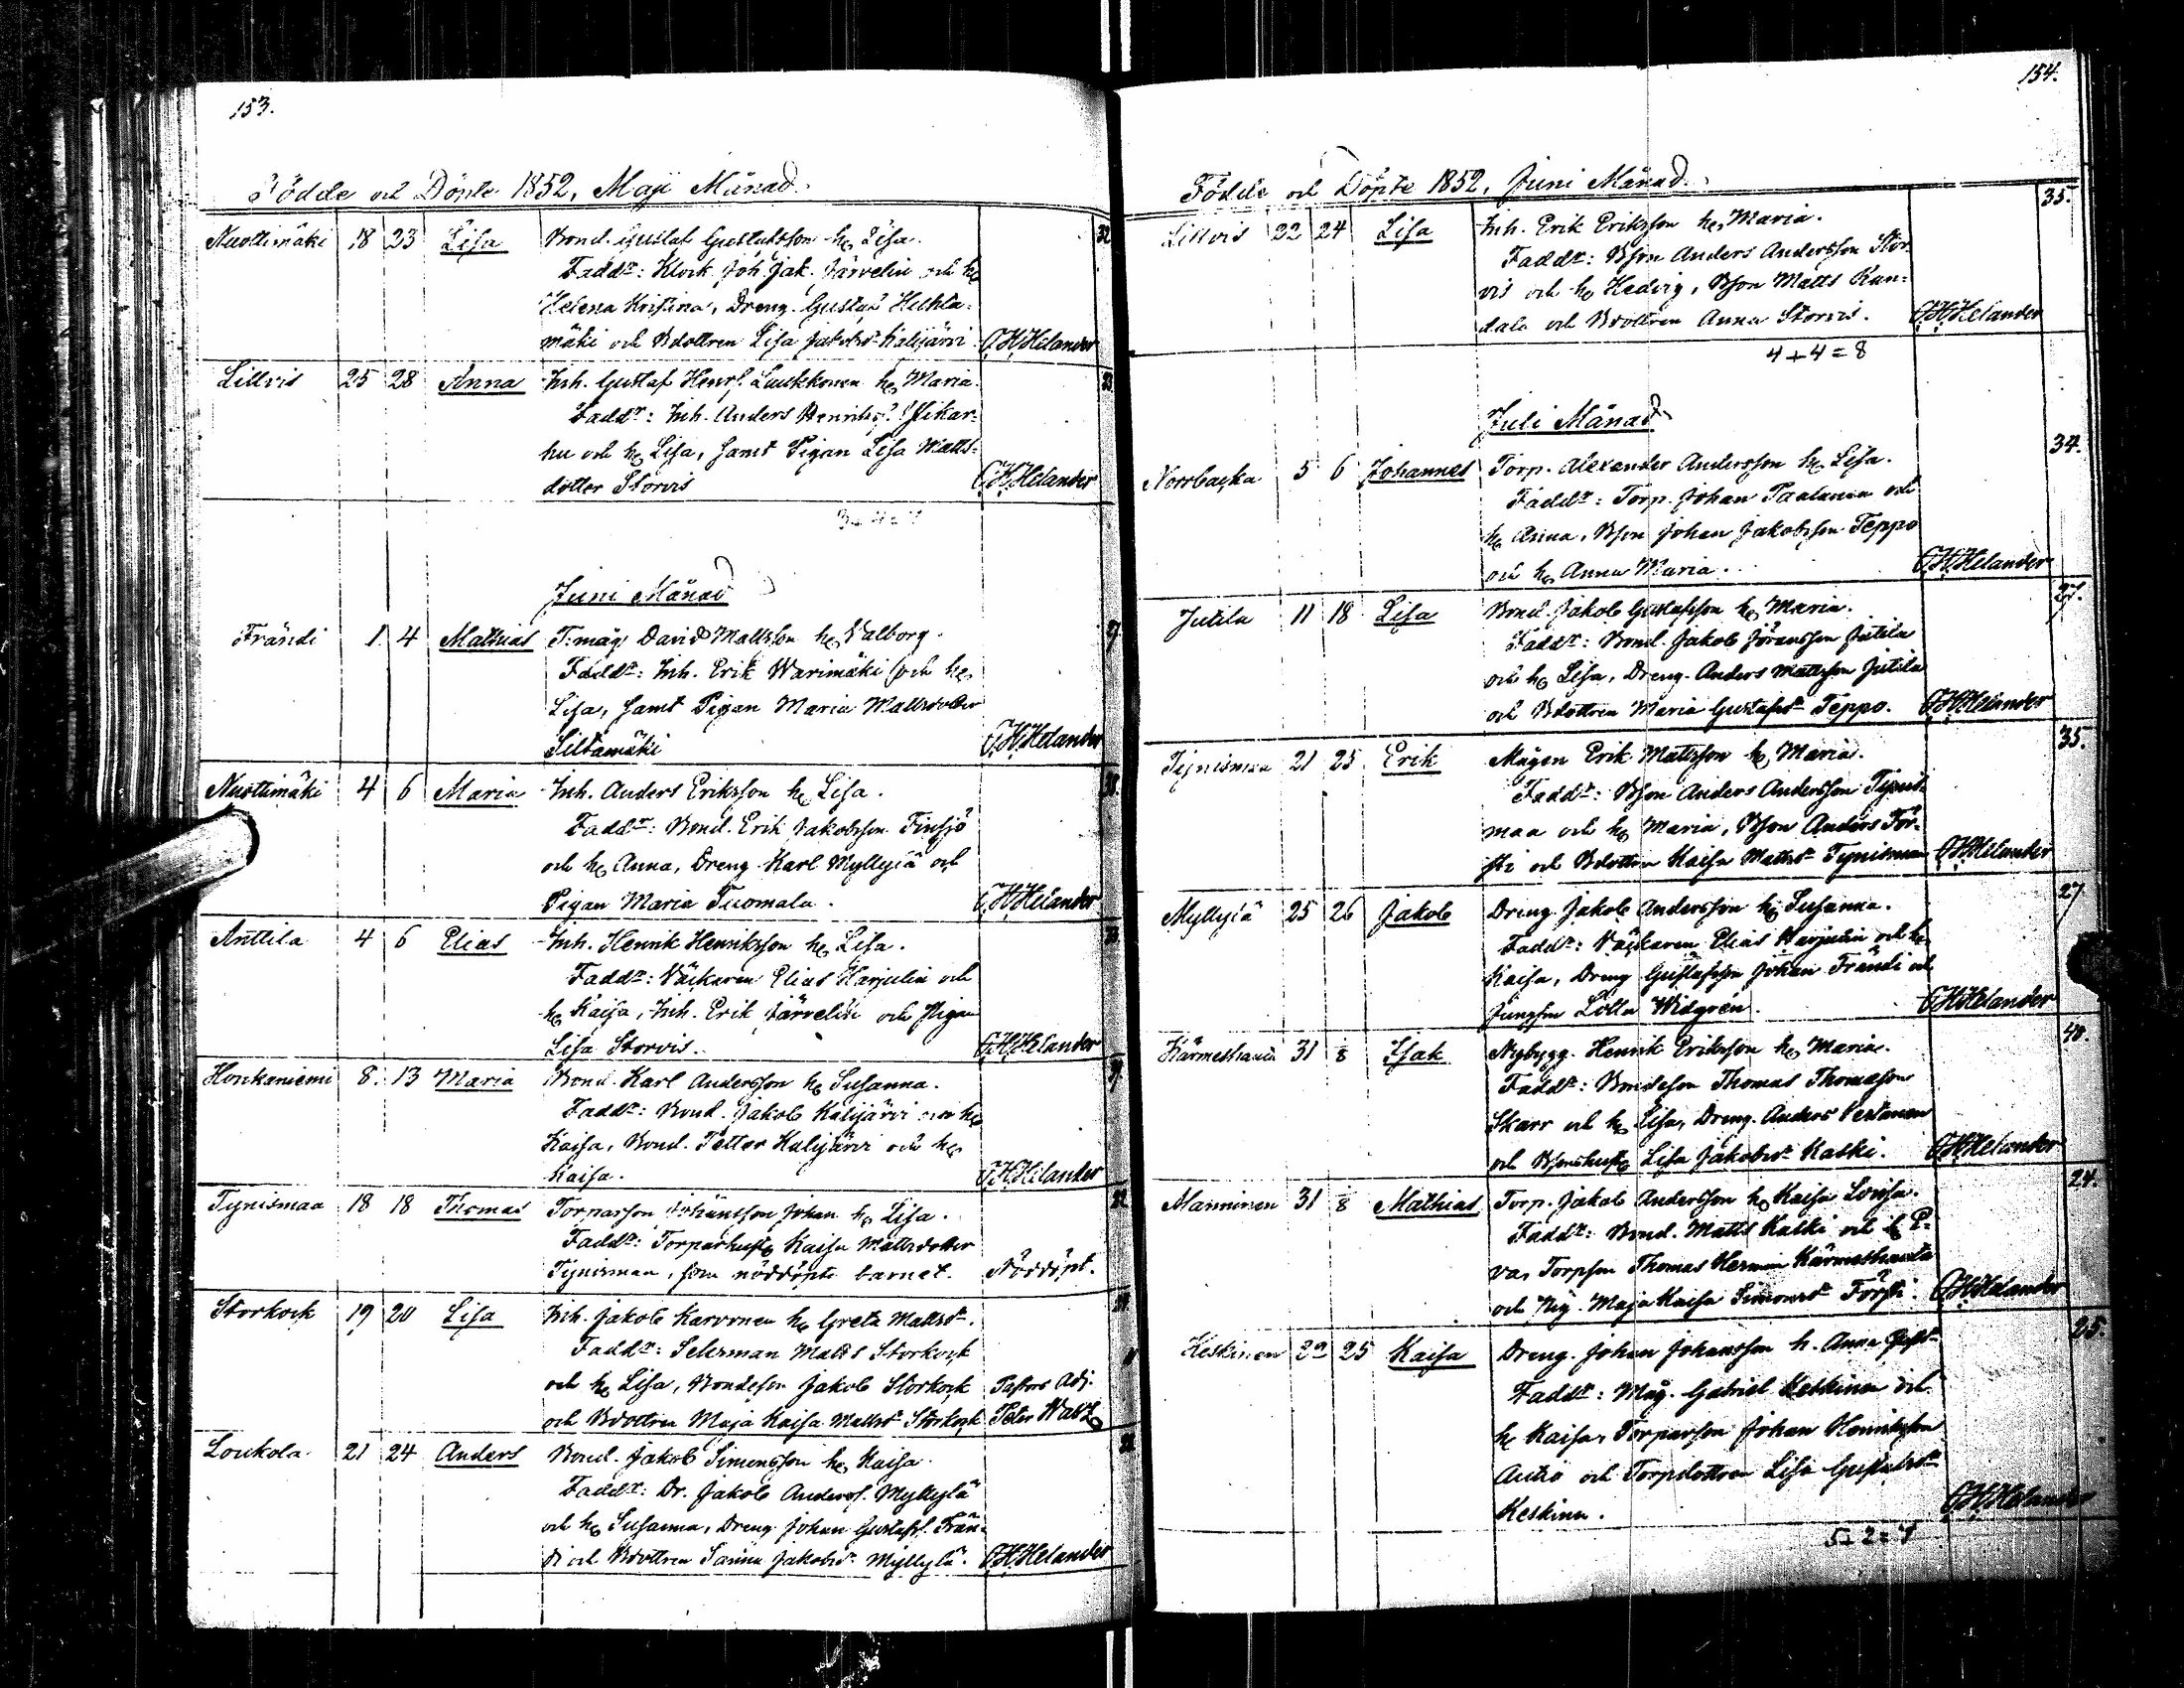 153.
Födde och Döpte 1852, Maji Månad.
Nuottimäki 18 23 Lisa Bond. Gustaf Gustafsson h. Lisa. 32
Faddr: Klock. Joh. Jak. Järvelin och h.
Helena Kristina, Dreng. Gustaf Huhta-
mäki och Bdottren Lisa Jakobsdr Kalijärvi C.H.Helander
Lillvis 25 28 Anna Inh. Gustaf Henrs. Luukkonen h. Maria. 33
Faddr: Inh. Anders Henriks.
hu och h. Lisa, samt Pigan Lisa Matts-
dotter Storvis C.H.Helander
Juni Månad
Frändi 1. 4 Mathias T:måg David Mattsson h. Valborg.
Faddr: Inh. Erik Warimäki och h.
Lisa, samt Pigan Maria Mattsdotter
Siltamäki C.H.Helander
Nuottimäki 4 6 Maria Inh. Anders Eriksson h. Lisa.
Faddr: Bond. Erik Jakobsson Finsjö
och h. Anna, Dreng Karl Myllylä och
Pigan Maria Tuomala. C.H.Helander
Anttila 4 6 Elias Inh. Henrik Henriksson h. Lisa.
Faddr: Väckaren Elias Harjulin och
h. Kaisa, Inh. Erik Järvelin och Pigan
Lisa Storvis. C.H.Helander
Honkaniemi 8. 13 Maria Bond. Karl Andersson h. Susanna.
Faddr: Bond. Jakob Kalijärvi och h.
Kaisa, Bond. Petter Kalijärvi och h.
Kaisa. C.H.Helander
Tynismaa 18 18 Thomas Torparson Johansson Johan h. Lisa.
Faddr: Torparhust. Kaisa Mattsdotter
Tynismaa, som nöddöpte barnet. Nöddöpt.
Storkock 19 20 Lisa Inh. Jakob Karvonen h. Greta Mattsdr.
Faddr: Selerman Matts Storkock
och h. Lisa, Bondeson Jakob Storkock Pastors Adj.
och Bdottren Maja Kaisa Mattsdr Storkock Peter
Loukola 21 24 Anders Bond. Jakob Simonsson h. Kaisa.
Faddr: Dr. Jakob Anders. Myllylä
och h. Susanna, Dreng Johan Gustafs. Frän-
di och Bdottren Sanna Jakobsdr Myllylä. C.H.Helander
154.
Födde och Döpte 1852, Juni Månad.
Lillvis 22 24 Lisa Inh. Erik Eriksson h. Maria. 35.
Faddr: Bson Anders Andersson Stor-
vis och h. Hedvig, Bson Matts Kan-
dala och Bdottren Anna Storvis. C.H.Helander
4+4=8
Juli Månad
Norrbacka 5 6 Johannes Torp. Alexander Andersson h. Lisa. 34.
Faddr: Torp. Johan Paalanen och
h. Anna, Bson Johan Jakobsson Teppo
och h. Anna Maria. C.H.Helander
Jutila 11 18 Lisa Bond. Jakob Gustafsson h. Maria. 37.
Faddr: Bond. Jakob Jöransson Jutila
och h. Lisa, Dreng. Anders Mattsson Jutila
och Bdottren Maria Gustafsdr Teppo. C.H.Helander
Tynismaa 21 25 Erik Mågen Erik Mattsson h. Maria. 35.
Faddr: Bson Anders Andersson Tynis-
maa och h. Maria, Bson Anders För-
sti och Bdottren Kaisa Mattsdr Tynismaa C.H.Helander
Myllylä 25 26 Jakob Dreng Jakob Andersson h. Susanna. 27
Faddr: Väckaren Elias Harjulin och h.
Kaisa, Dreng Gustafsson Johan Frändi och
Jungfru Lotta Widgrén. C.H.Helander
31 8 Isak Nybygg. Henrik Eriksson h. Maria. 40.
Faddr: Bondeson Thomas Thomasson
Skarr och h. Lisa, Dreng. Anders Pertanen
och Bsonshust. Lisa Jakobsdr Katki. C.H.Helander
Manninen 31 8 Mathias Torp. Jakob Andersson h. Kaisa Lovisa. 24.
Faddr: Bond. Matts Katki och h. E-
va, Torpson Thomas Herman
och Pig. Maja Kaisa Simonsdr Försti. C.H.Helander
Keskinen 22 25 Kaisa Dreng. Johan Johansson h. Anna 25.
Faddr: Måg. Gabriel Keskinen och
h. Kaisa, Torparson Johan Henriksson
Autio och Torpdottren Lisa Gustafsdr
Keskinen. C.H.Helander
5+2=7